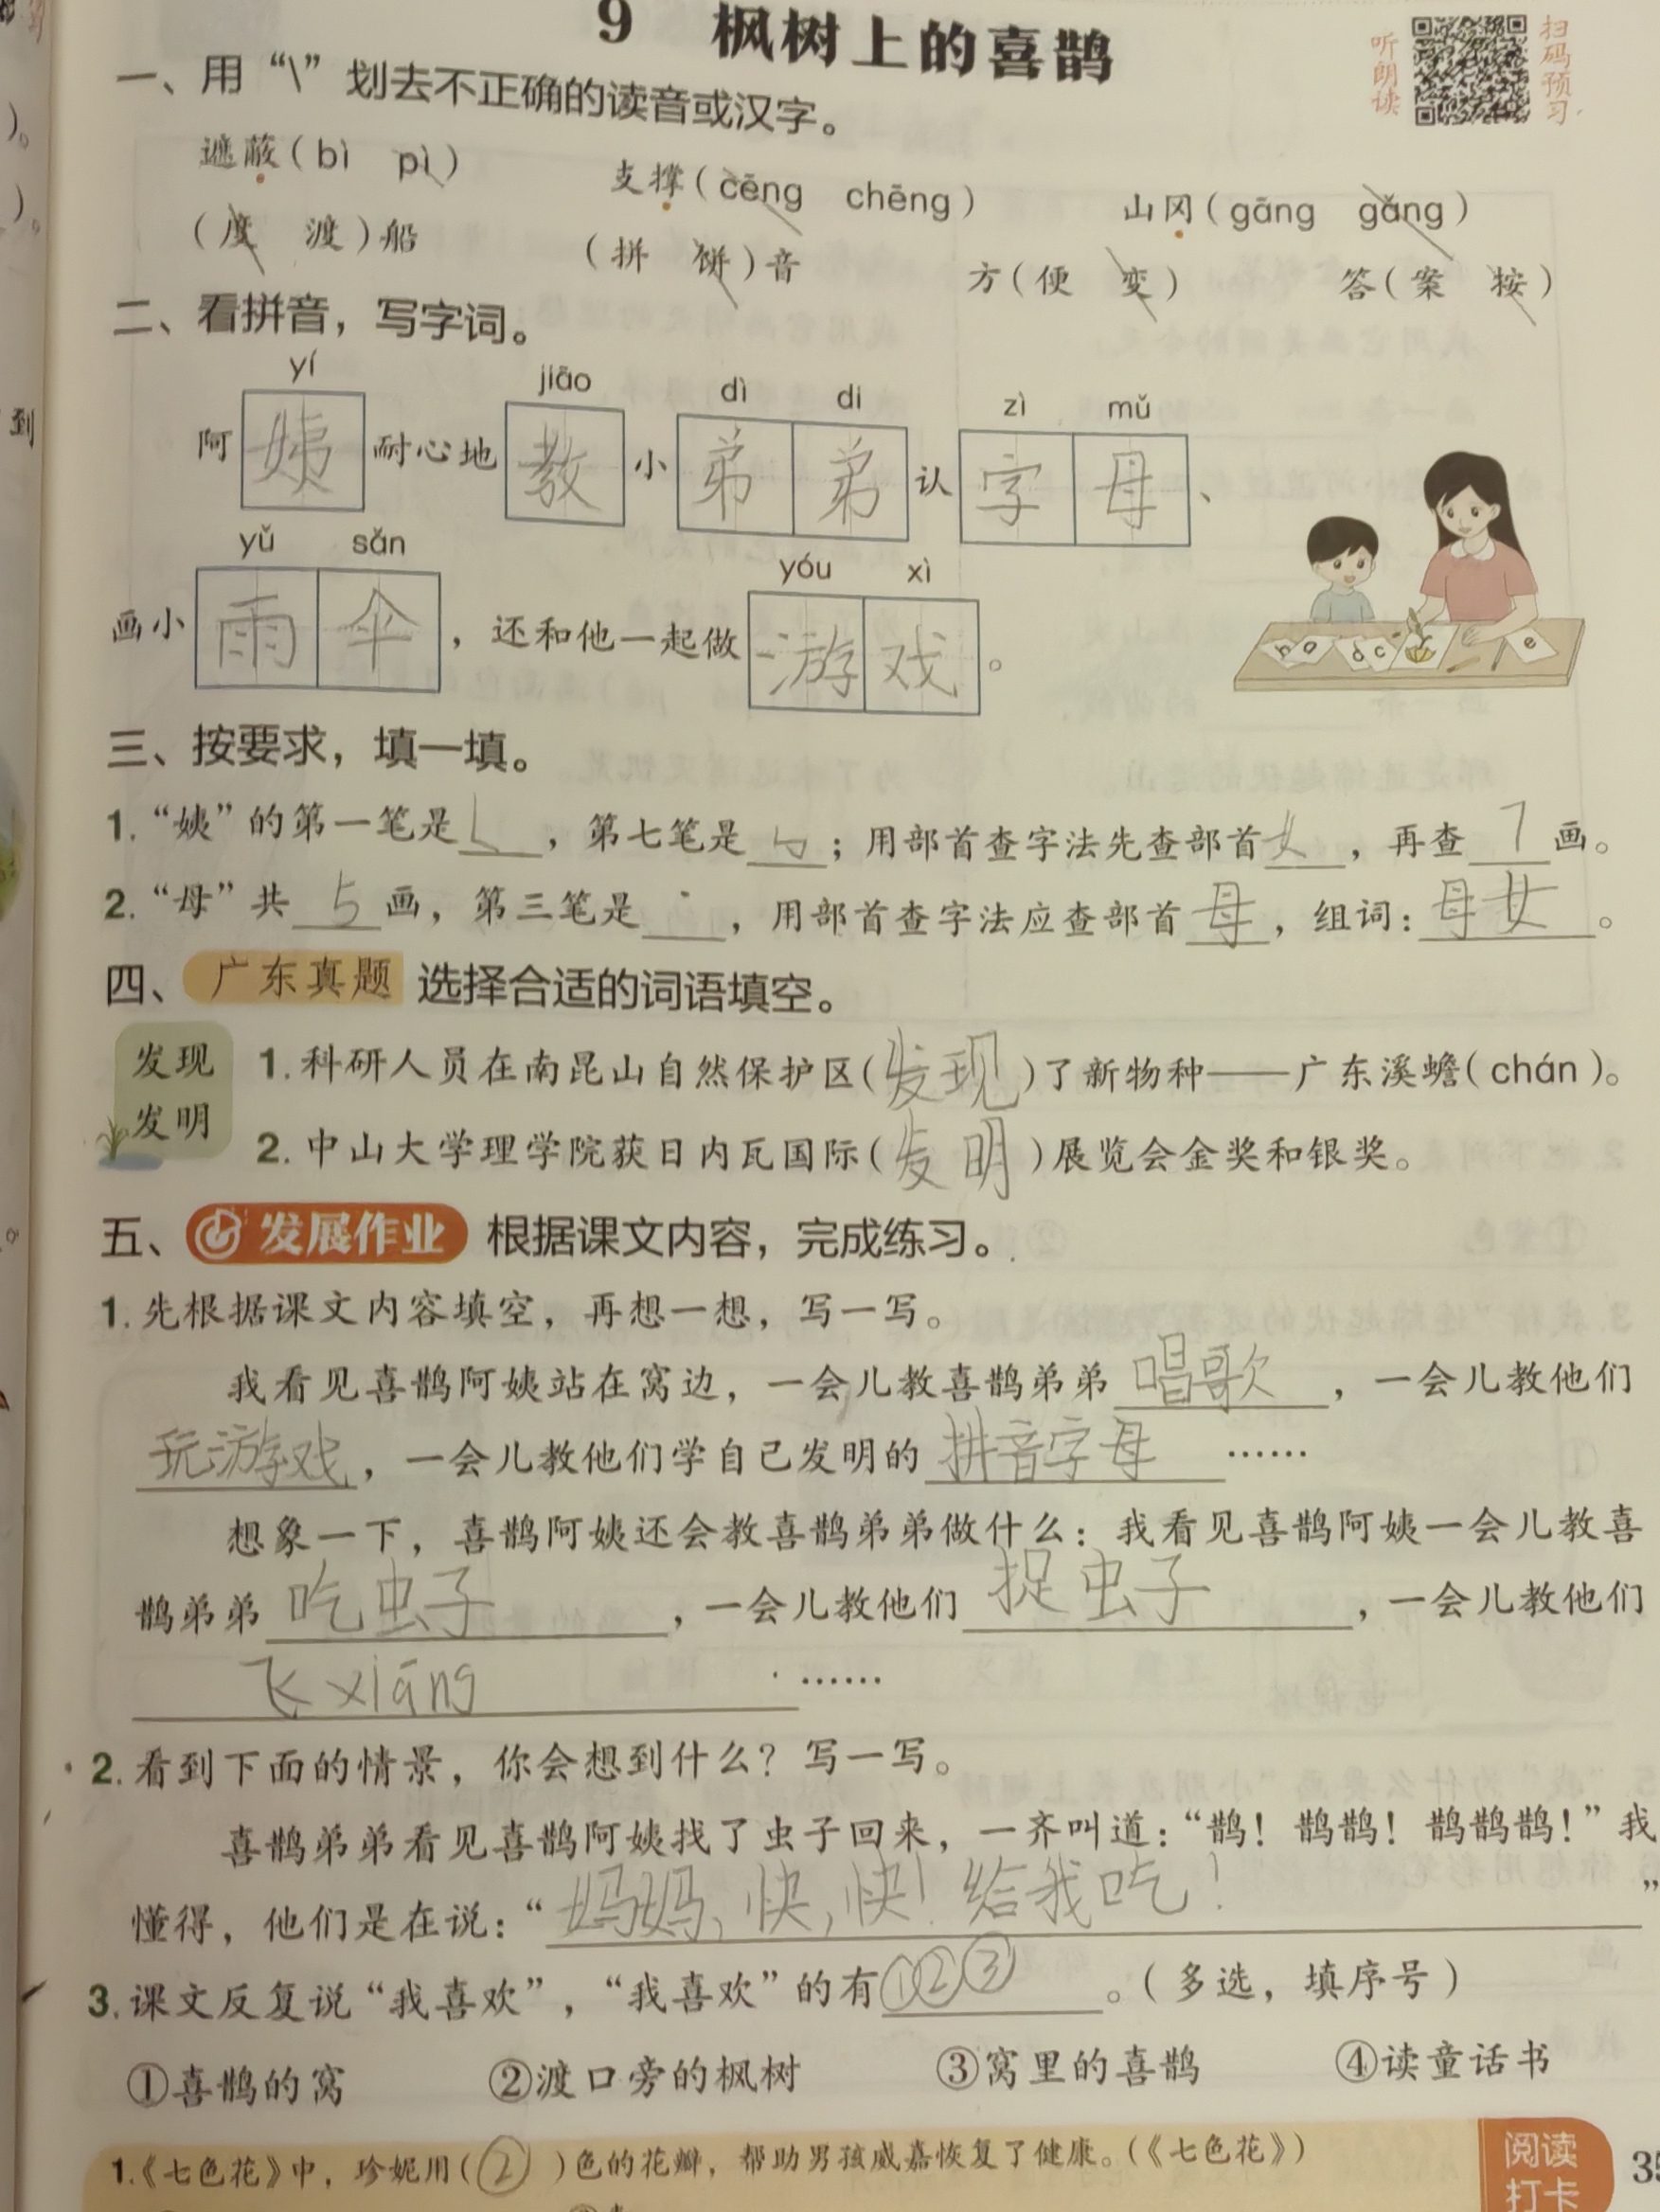 9 枫树上的喜鹊
听朗读 扫码预习
一、用“\”划去不正确的读音或汉字。
遮蔽(bì pì) 支撑(cēng chēng) 山冈(gāng gǎng)
(度 渡)船 (拼 饼)音 方(便 变) 答(案 按)
二、看拼音，写字词。
yí jiāo dì di zì mǔ
阿姨耐心地教小弟弟认字母、
yǔ sǎn yóu xì
画小雨伞，还和他一起做游戏。
三、按要求，填一填。
1.“姨”的第一笔是𡿨，第七笔是㇉；用部首查字法先查部首女，再查7画。
2.“母”共5画，第三笔是丶，用部首查字法应查部首母，组词：母女。
四、广东真题 选择合适的词语填空。
发现 1.科研人员在南昆山自然保护区(发现)了新物种——广东溪蟾(chán)。
发明 2.中山大学理学院获日内瓦国际(发明)展览会金奖和银奖。
五、发展作业 根据课文内容，完成练习。
1.先根据课文内容填空，再想一想，写一写。
我看见喜鹊阿姨站在窝边，一会儿教喜鹊弟弟唱歌，一会儿教他们
玩游戏，一会儿教他们学自己发明的拼音字母……
想象一下，喜鹊阿姨还会教喜鹊弟弟做什么：我看见喜鹊阿姨一会儿教喜
鹊弟弟吃虫子，一会儿教他们捉虫子，一会儿教他们
飞xiāng……
2.看到下面的情景，你会想到什么？写一写。
喜鹊弟弟看见喜鹊阿姨找了虫子回来，一齐叫道：“鹊！鹊鹊！鹊鹊鹊！”我
懂得，他们是在说：“妈妈、快，快！给我吃！”
3.课文反复说“我喜欢”，“我喜欢”的有①②③。（多选，填序号）
①喜鹊的窝 ②渡口旁的枫树 ③窝里的喜鹊 ④读童话书
1.《七色花》中，珍妮用(②)色的花瓣，帮助男孩威嘉恢复了健康。（《七色花》）
阅读打卡